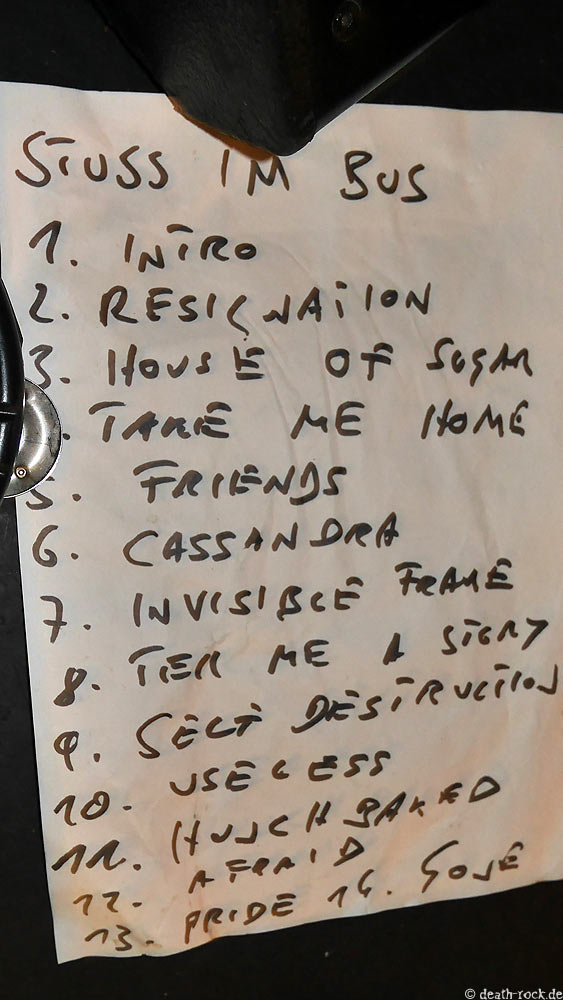 STUSS IM BUS
1. INTRO
2. RESIGNATION
3. HOUSE OF SUGAR
. TAKE ME HOME
5. FRIENDS
6. CASSANDRA
7. INVISIBLE FRAME
8. TELL ME A STORY
9. SELF DESTRUCTION
10. USELESS
11. HUNCHBAKED
12. AFRAID
13. PRIDE 14. GONE
© death-rock.de